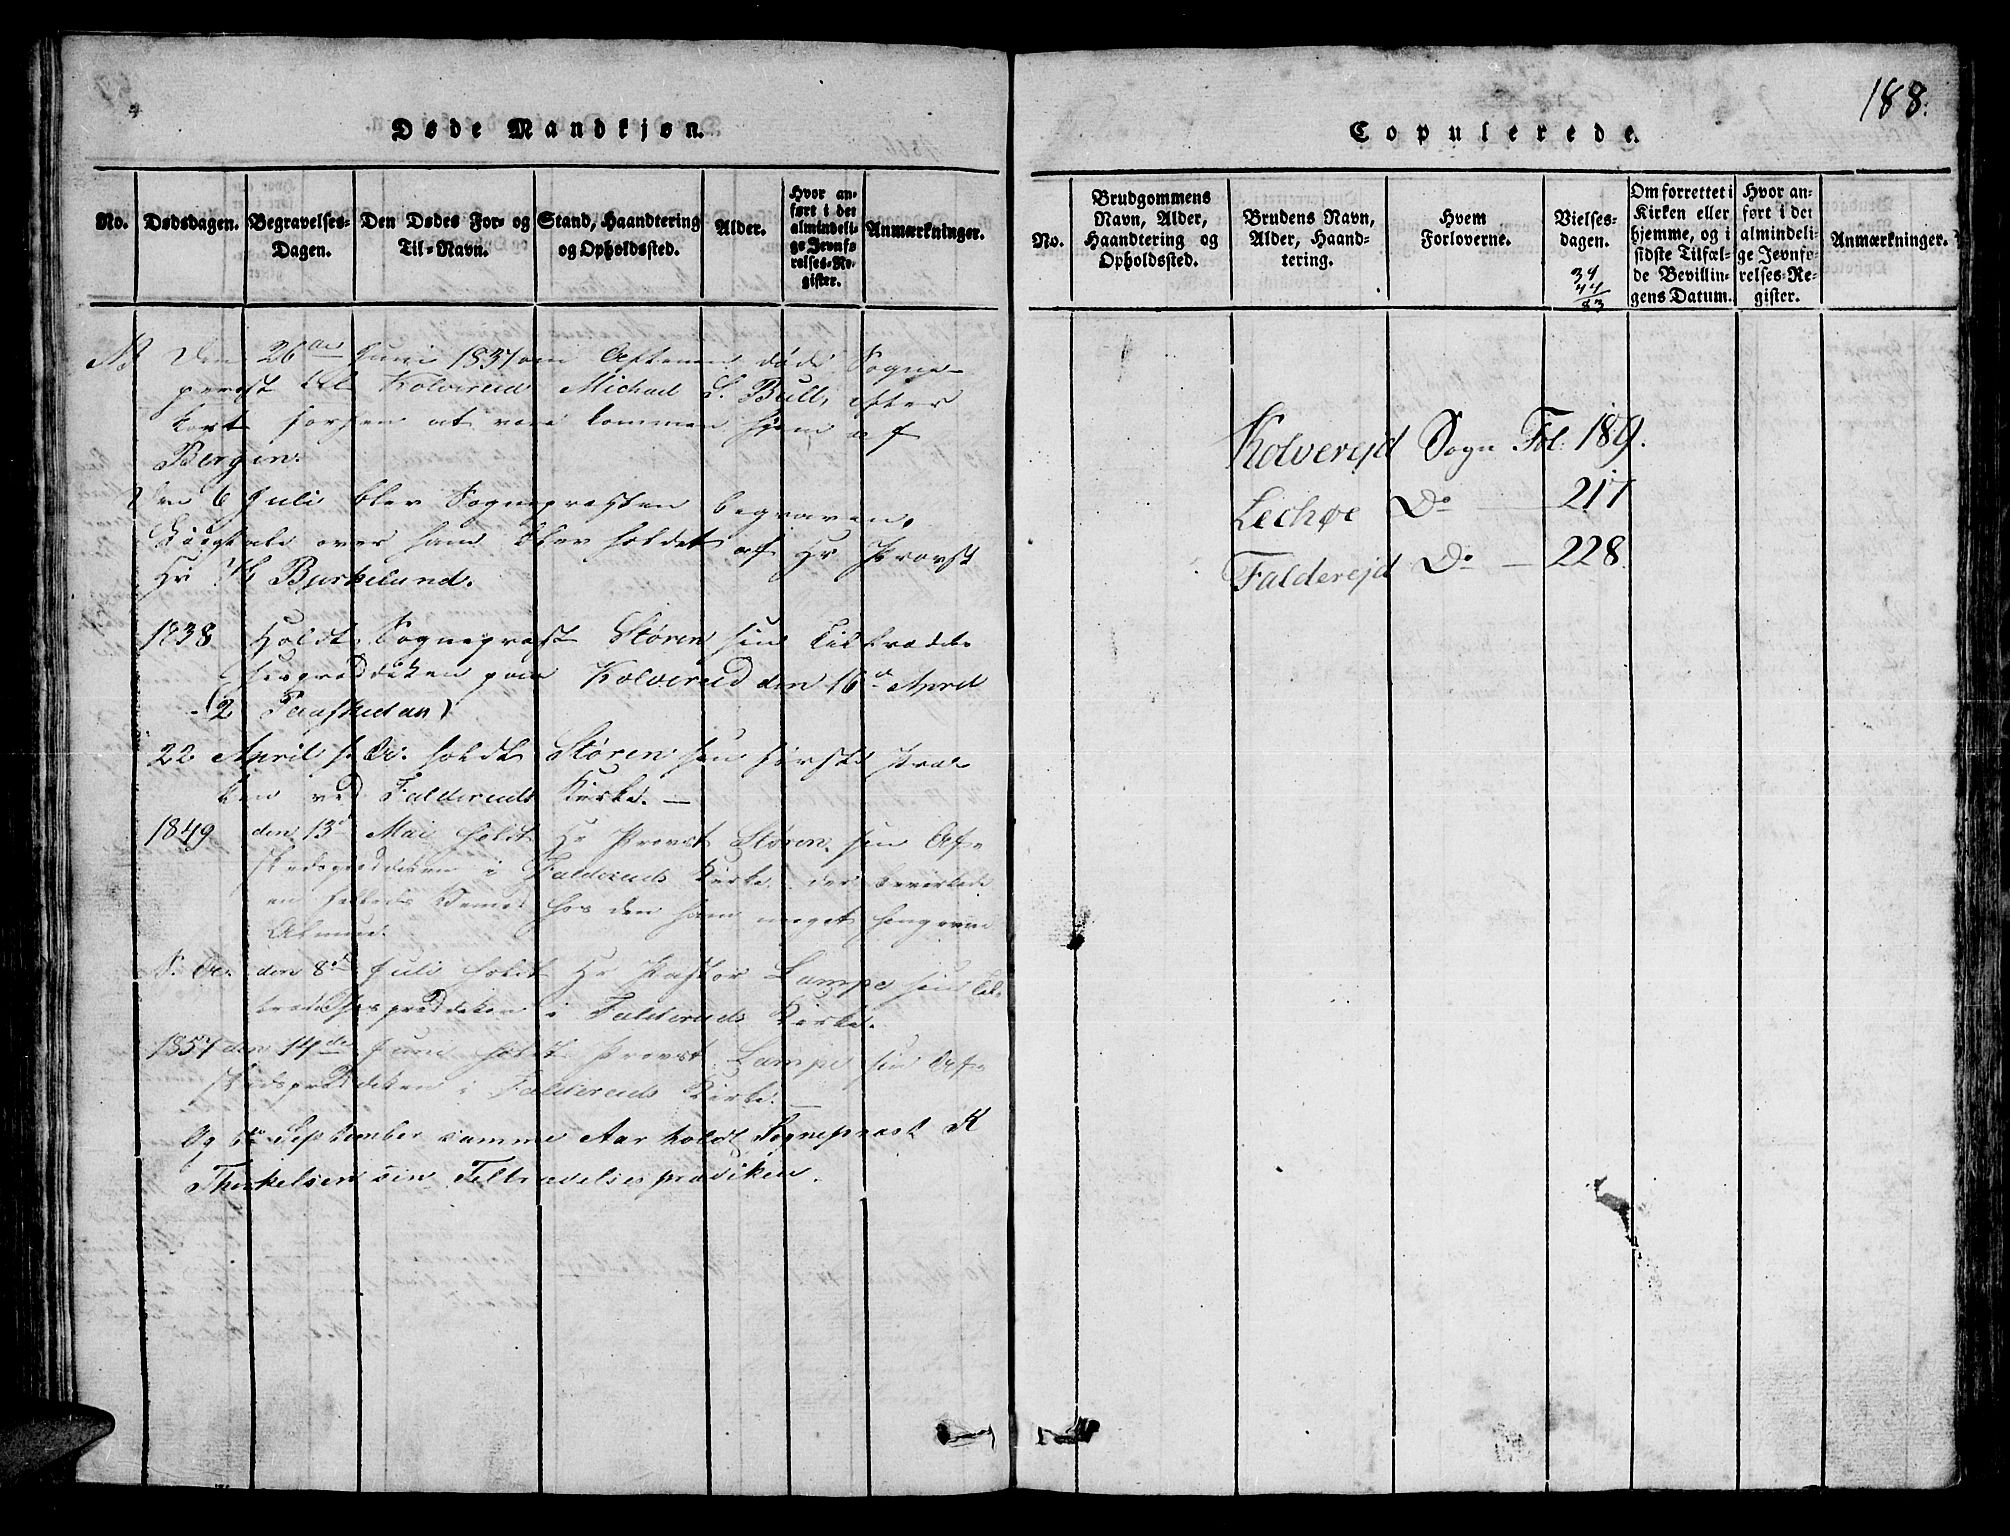 Døde Mandkjøn.
No.
Dødsdagen.
Begravelses-
Dagen.
Den Dødes For- og
Til-Navn.
Stand, Haandtering
og Opholdssted.
Alder.
Hvor an-
ført i det
almindeli-
ge Jevnfø-
relses-Re-
gister.
Anmærkninger.
NB Den 26de Juni 1837 om Aftenen døde Sogne-
præst til Kolvereid Michael S. Bull, efter
kort forhen at være kommen hjem af
Bergen.
Den 6 Juli blev Sognepræsten begraven,
over ham blev holdet af Hr Provst
Hr Byrkelund.
1838 Holdt Sognepræst Støren sin Tiltrædel-
sesprædiken paa Kolvereid den 16de April
(2 Paaskedan)
22 April s. A. holdt Støren sin første Præd-
ken ved Faldereids Kirke. —
1849 den 13de Mai holdt Hr Provst Støren sin Af-
skedsprædiken i Faldereids Kirke, der bevirkede
en hos den ham meget hengivne
Almue.
S. A. den 8de Juli holdt Hr Pastor Lampe sin Til-
trædelsesprædiken i Faldereids Kirke.
1857 den 14de Juni holdt Provst Lampe sin Af-
skedsprædiken i Faldereids Kirke.
Og September samme Aar holdt Sognepræst K
Thorkelsen sin Teltrædelsesprædiken.
188.
Copulerede.
No.
Brudgommens
Navn, Alder,
Haandtering og
Opholdssted.
Brudens Navn,
Alder, Haand-
tering.
Hvem
Forloverne.
Vielses-
dagen.
34
44
83
Om forrettet i
Kirken eller
hjemme, og i
sidste Tilfæl-
de Bevillin-
gens Datum.
Hvor an-
ført i det
almindeli-
ge Jevnfø-
relses-Re-
gister.
Anmærkninger.
Kolverejd Sogn Fol. 189.
Lechøe Do — 217
Falderejd Do — 228.